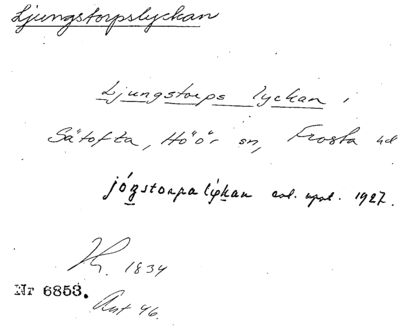 Ljungstorpslyckan
Ljungstorps lyckan i
Sätofta, Höör sn, Frosta hd
józstorpalykan enl. uppt. 1927.
H. 1834
Nr 6853.
Ant 46.